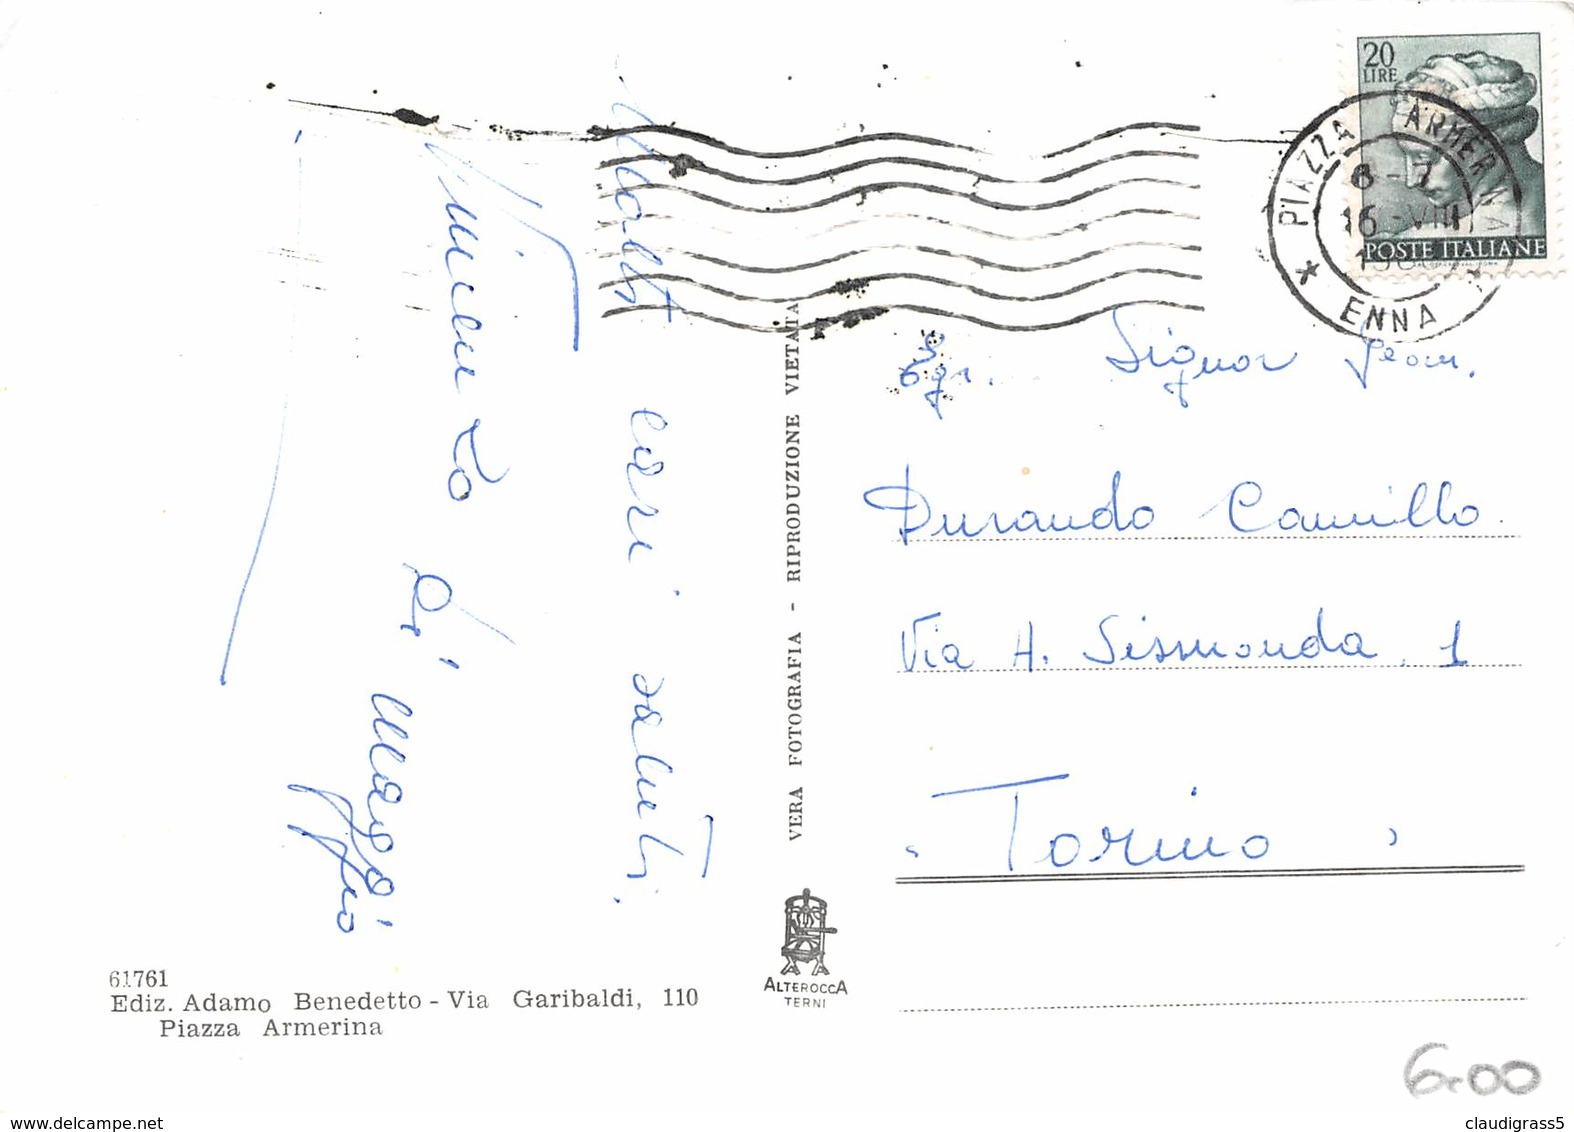 20
LIRE
POSTE ITALIANE
PIAZZA ARMERINA
8-7
16-VIII
ENNA
Molti cari saluti.
Vincenzo Di Maggio
VERA FOTOGRAFIA - RIPRODUZIONE VIETATA
Egr. Signor Geom.
Durando Camillo
Via A. Sismonda, 1
Torino
61761
Ediz. Adamo Benedetto - Via Garibaldi, 110
Piazza Armerina
ALTEROCCA
TERNI
6.00
www.delcampe.net
claudigrass5